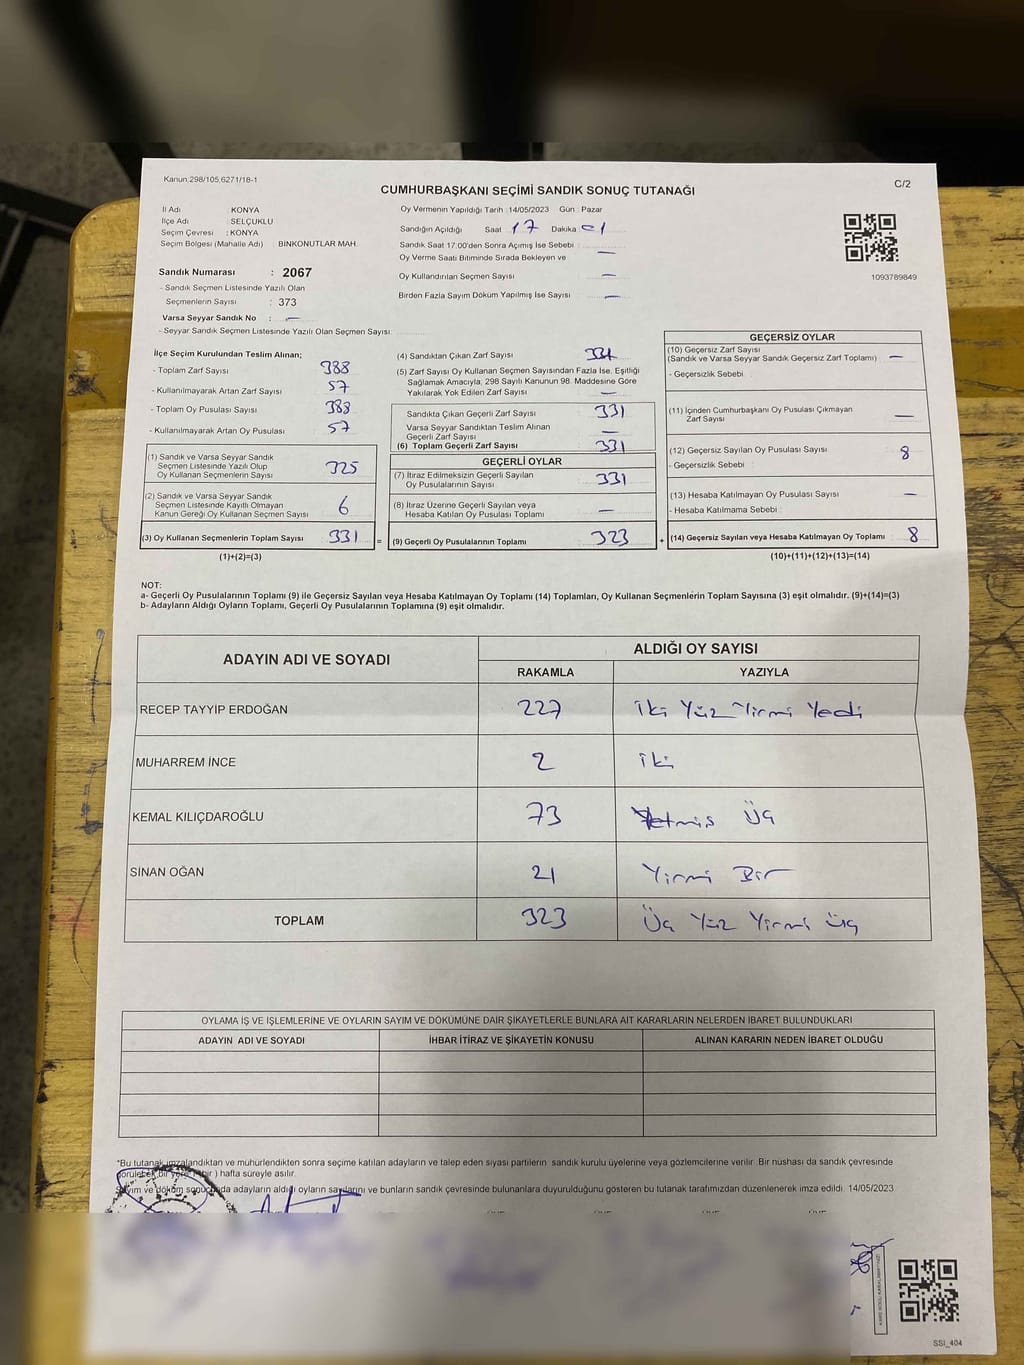 Kanun:298/105,6271/18-1
C/2
CUMHURBAŞKANI SEÇİMİ SANDIK SONUÇ TUTANAĞI
İl Adı : KONYA
İlçe Adı : SELÇUKLU
Seçim Çevresi : KONYA
Seçim Bölgesi (Mahalle Adı) : BİNKONUTLAR MAH.
Sandık Numarası : 2067
- Sandık Seçmen Listesinde Yazılı Olan
Seçmenlerin Sayısı : 373
Varsa Seyyar Sandık No : —
- Seyyar Sandık Seçmen Listesinde Yazılı Olan Seçmen Sayısı:
Oy Vermenin Yapıldığı Tarih : 14/05/2023 Gün : Pazar
Sandığın Açıldığı Saat 17 Dakika 01
Sandık Saat 17:00'den Sonra Açımış İse Sebebi :
Oy Verme Saati Bitiminde Sırada Bekleyen ve —
Oy Kullandırılan Seçmen Sayısı —
Birden Fazla Sayım Döküm Yapılmış İse Sayısı —
1093789849
İlçe Seçim Kurulundan Teslim Alınan;
- Toplam Zarf Sayısı : 388
- Kullanılmayarak Artan Zarf Sayısı : 57
- Toplam Oy Pusulası Sayısı : 388
- Kullanılmayarak Artan Oy Pusulası : 57
(1) Sandık ve Varsa Seyyar Sandık
Seçmen Listesinde Yazılı Olup
Oy Kullanan Seçmenlerin Sayısı 325
(2) Sandık ve Varsa Seyyar Sandık
Seçmen Listesinde Kayıtlı Olmayan
Kanun Gereği Oy Kullanan Seçmen Sayısı 6
(3) Oy Kullanan Seçmenlerin Toplam Sayısı 331 =
(1)+(2)=(3)
(4) Sandıktan Çıkan Zarf Sayısı 331
(5) Zarf Sayısı Oy Kullanan Seçmen Sayısından Fazla İse, Eşitliği
Sağlamak Amacıyla, 298 Sayılı Kanunun 98. Maddesine Göre
Yakılarak Yok Edilen Zarf Sayısı —
Sandıkta Çıkan Geçerli Zarf Sayısı 331
Varsa Seyyar Sandıktan Teslim Alınan
Geçerli Zarf Sayısı —
(6) Toplam Geçerli Zarf Sayısı 331
GEÇERLİ OYLAR
(7) İtiraz Edilmeksizin Geçerli Sayılan
Oy Pusulalarının Sayısı 331
(8) İtiraz Üzerine Geçerli Sayılan veya
Hesaba Katılan Oy Pusulası Toplamı —
(9) Geçerli Oy Pusulalarının Toplamı 323 +
GEÇERSİZ OYLAR
(10) Geçersiz Zarf Sayısı
(Sandık ve Varsa Seyyar Sandık Geçersiz Zarf Toplamı) —
- Geçersizlik Sebebi :
(11) İçinden Cumhurbaşkanı Oy Pusulası Çıkmayan
Zarf Sayısı —
(12) Geçersiz Sayılan Oy Pusulası Sayısı : 8
- Geçersizlik Sebebi :
(13) Hesaba Katılmayan Oy Pusulası Sayısı : —
- Hesaba Katılmama Sebebi :
(14) Geçersiz Sayılan veya Hesaba Katılmayan Oy Toplamı 8
(10)+(11)+(12)+(13)=(14)
NOT:
a- Geçerli Oy Pusulalarının Toplamı (9) ile Geçersiz Sayılan veya Hesaba Katılmayan Oy Toplamı (14) Toplamları, Oy Kullanan Seçmenlerin Toplam Sayısına (3) eşit olmalıdır. (9)+(14)=(3)
b- Adayların Aldığı Oyların Toplamı, Geçerli Oy Pusulalarının Toplamına (9) eşit olmalıdır.
ADAYIN ADI VE SOYADI
ALDIĞI OY SAYISI
RAKAMLA YAZIYLA
RECEP TAYYİP ERDOĞAN 227 İki Yüz Yirmi Yedi
MUHARREM İNCE 2 İki
KEMAL KILIÇDAROĞLU 73 Yetmiş Üç
SİNAN OĞAN 21 Yirmi Bir
TOPLAM 323 Üç Yüz Yirmi Üç
OYLAMA İŞ VE İŞLEMLERİNE VE OYLARIN SAYIM VE DÖKÜMÜNE DAİR ŞİKAYETLERLE BUNLARA AİT KARARLARIN NELERDEN İBARET BULUNDUKLARI
ADAYIN ADI VE SOYADI İHBAR İTİRAZ VE ŞİKAYETİN KONUSU ALINAN KARARIN NEDEN İBARET OLDUĞU
*Bu tutanak imzalandıktan ve mühürlendikten sonra seçime katılan adayların ve talep eden siyasi partilerin sandık kurulu üyelerine veya gözlemcilerine verilir. Bir nüshası da sandık çevresinde
görülebilir bir yere ( bir ) hafta süreyle asılır.
Sayım ve döküm sonucunda adayların aldığı oyların sayılarını ve bunların sandık çevresinde bulunanlara duyurulduğunu gösteren bu tutanak tarafımızdan düzenlenerek imza edildi. 14/05/2023
SSİ_404